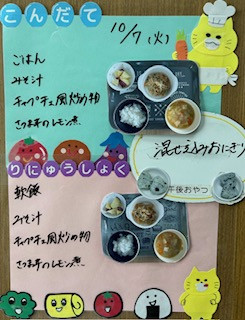 こんだて
10/7(火)
ごはん
みそ汁
チャプチェ風炒め物
さつま芋のレモン煮
りにゅうしょく
軟飯
みそ汁
チャプチェ風炒め物
さつま芋のレモン煮
午後おやつ
混ぜ込みおにぎり